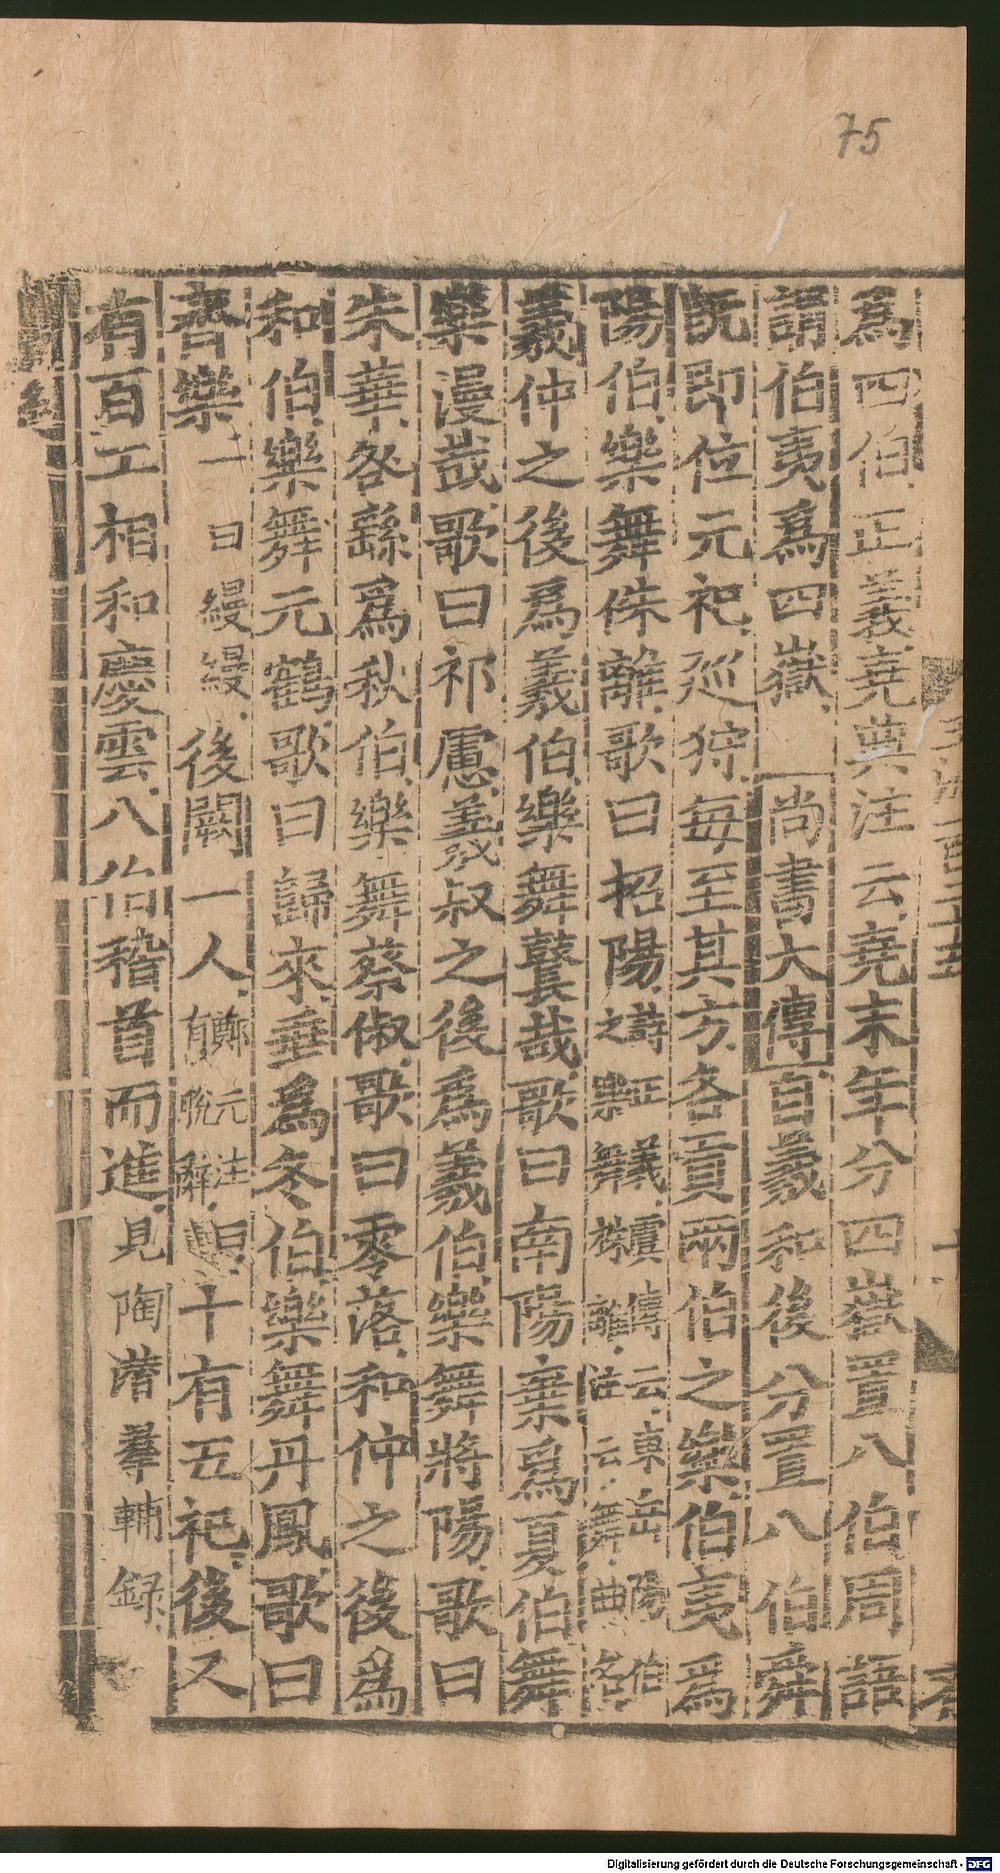 75
爲四伯正義堯典注云堯末年分四嶽置八伯周語
謂伯夷爲四嶽尚書大傳自羲和後分置八伯舜
既即位元祀巡狩每至其方各貢兩伯之樂伯夷爲
陽伯樂舞侏離歌曰招陽詩正義虞傳云東岳陽伯之樂舞株離注云舞曲名
羲仲之後爲羲伯樂舞鼚哉歌曰南陽棄爲夏伯舞
樂漫哉歌曰祁慮羲叔之後爲羲伯樂舞將陽歌曰
朱華咎繇爲秋伯樂舞蔡俶歌曰零落和仲之後爲
和伯樂舞元鶴歌曰歸來垂爲冬伯樂舞丹鳳歌曰
齊樂一曰縵縵後闕一人鄭元注有脫辭 十有五祀後又
有百工相和慶雲八伯稽首而進見陶潛羣輔錄
Digitalisierung gefördert durch die Deutsche Forschungsgemeinschaft - DFG